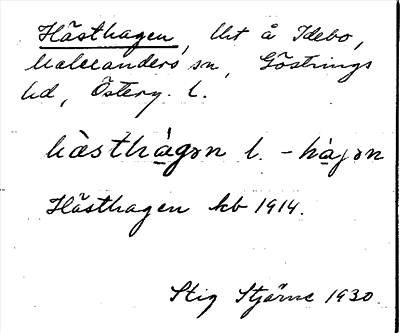 Hästhagen, lht å Idebo,
Malexanders sn, Göstrings
hd, Österg. l.
hàsthàgən l. -hàjən
Hästhagen kb 1914.
Stig Stjärne 1930.